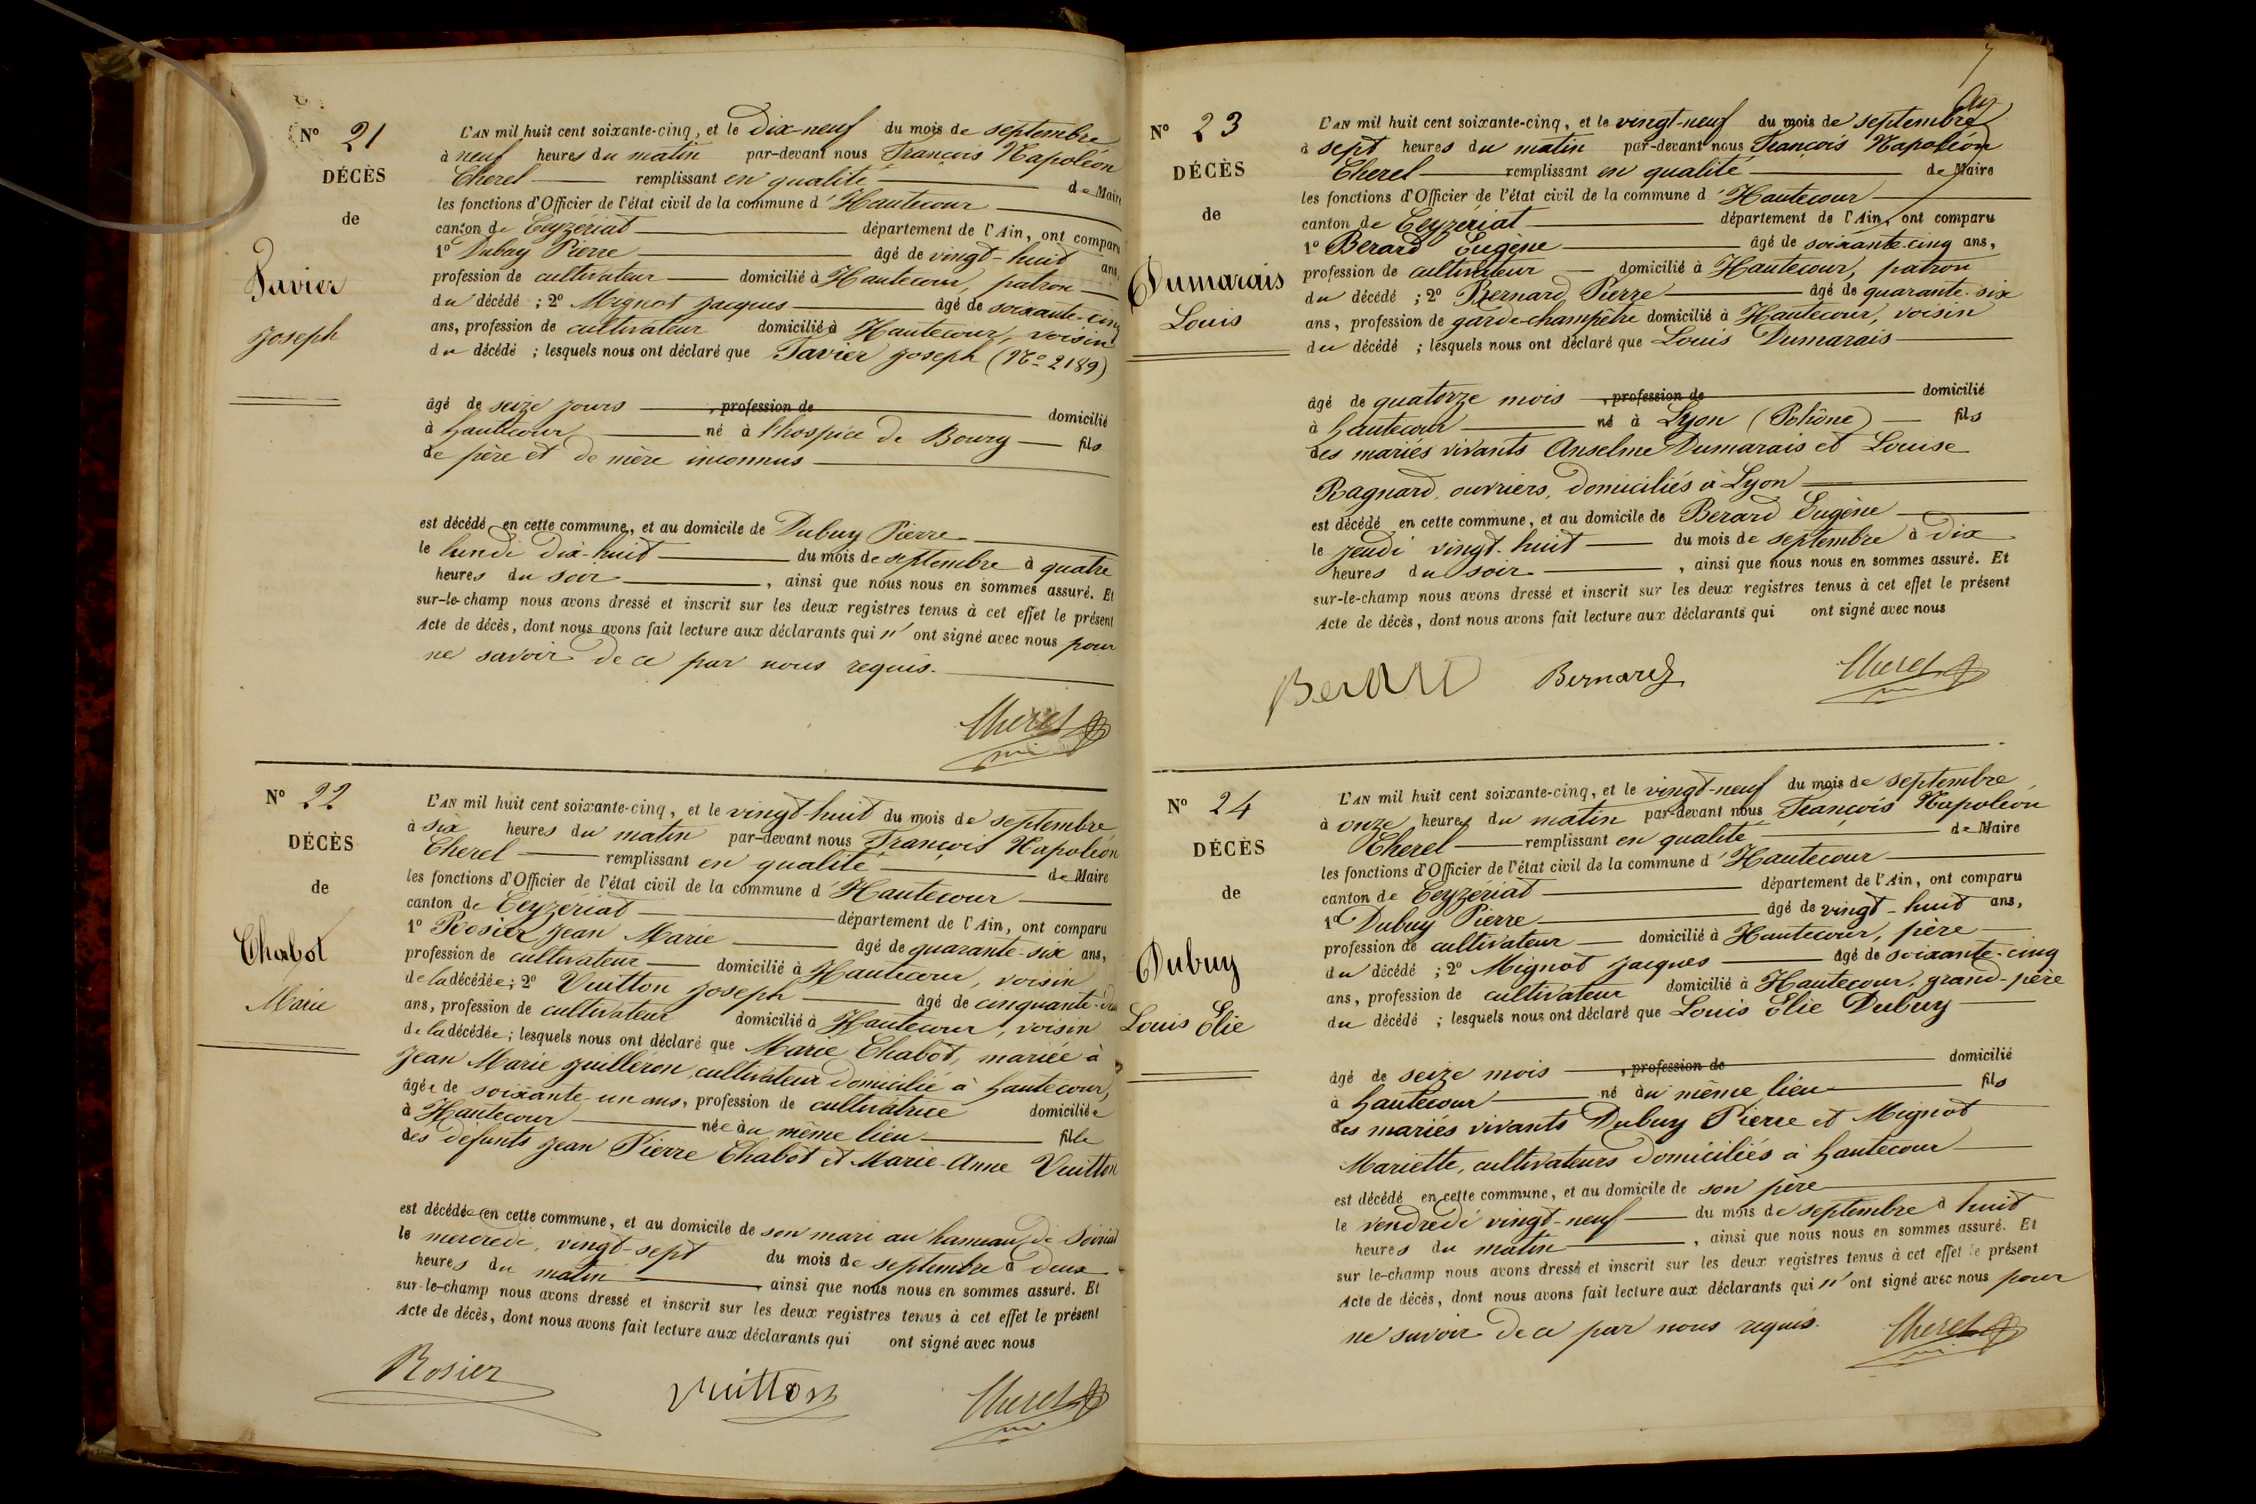 N° 21
DÉCÈS
de
Tavier
Joseph
L'AN mil huit cent soixante-cinq, et le dix-neuf du mois de septembre
à neuf heures du matin par-devant nous François Napoléon
Cherel remplissant en qualité de Maire
les fonctions d'Officier de l'état civil de la commune d'Hautecour
canton de Ceyzériat département de l'Ain, ont comparu
1° Dubuy Pierre âgé de vingt-huit ans,
profession de cultivateur domicilié à Hautecour, patron
du décédé ; 2° Mignot Jacques âgé de soixante-cinq
ans, profession de cultivateur domicilié à Hautecour, voisin
du décédé ; lesquels nous ont déclaré que Tavier Joseph (N° 2189)
âgé de seize jours , profession de domicilié
à hautecour né à l'hospice de Bourg fils
de père et de mère inconnus
est décédé en cette commune, et au domicile de Dubuy Pierre
le lundi dix-huit du mois de septembre à quatre
heures du soir , ainsi que nous nous en sommes assuré. Et
sur-le-champ nous avons dressé et inscrit sur les deux registres tenus à cet effet le présent
Acte de décès, dont nous avons fait lecture aux déclarants qui n' ont signé avec nous pour
ne savoir de ce par nous requis.
Cherel
N° 22
DÉCÈS
de
Chabot
Marie
L'AN mil huit cent soixante-cinq, et le vingt-huit du mois de septembre
à six heures du matin par-devant nous François Napoléon
Cherel remplissant en qualité de Maire
les fonctions d'Officier de l'état civil de la commune d'Hautecour
canton de Ceyzériat département de l'Ain, ont comparu
1° Rosier Jean Marie âgé de quarante-six ans,
profession de cultivateur domicilié à Hautecour, voisin
de la décédée ; 2° Vuitton Joseph âgé de cinquante-
ans, profession de cultivateur domicilié à Hautecour, voisin
de la décédée ; lesquels nous ont déclaré que Marie Chabot, mariée à
Jean Marie Guilleron, cultivateur domicilié à hautecour,
âgée de soixante-un ans, profession de cultivatrice domiciliée
à Hautecour née au même lieu fille
des défunts Jean Pierre Chabot et Marie-Anne Vuitton
est décédée en cette commune, et au domicile de son mari au hameau de
le mercredi, vingt-sept du mois de septembre à deux
heures du matin , ainsi que nous nous en sommes assuré. Et
sur-le-champ nous avons dressé et inscrit sur les deux registres tenus à cet effet le présent
Acte de décès, dont nous avons fait lecture aux déclarants qui ont signé avec nous
Rosier Vuitton Cherel
7
N° 23
DÉCÈS
de
Dumarais
Louis
L'AN mil huit cent soixante-cinq, et le vingt-neuf du mois de septembre
à sept heures du matin par-devant nous François Napoléon
Cherel remplissant en qualité de Maire
les fonctions d'Officier de l'état civil de la commune d'Hautecour
canton de Ceyzériat département de l'Ain, ont comparu
1° Berard Eugène âgé de soixante-cinq ans,
profession de cultivateur domicilié à Hautecour, patron
du décédé ; 2° Bernard Pierre âgé de quarante-six
ans, profession de garde-champêtre domicilié à Hautecour, voisin
du décédé ; lesquels nous ont déclaré que Louis Dumarais
âgé de quatorze mois , profession de domicilié
à hautecour né à Lyon (Rhône) fils
des mariés vivants Anselme Dumarais et Louise
Ragnard, ouvriers, domiciliés à Lyon
est décédé en cette commune, et au domicile de Berard Eugène
le jeudi vingt-huit du mois de septembre à dix
heures du soir , ainsi que nous nous en sommes assuré. Et
sur-le-champ nous avons dressé et inscrit sur les deux registres tenus à cet effet le présent
Acte de décès, dont nous avons fait lecture aux déclarants qui ont signé avec nous
Berard Bernard Cherel
N° 24
DÉCÈS
de
Dubuy
Louis Elie
L'AN mil huit cent soixante-cinq, et le vingt-neuf du mois de septembre
à onze heures du matin par-devant nous François Napoléon
Cherel remplissant en qualité de Maire
les fonctions d'Officier de l'état civil de la commune d'Hautecour
canton de Ceyzériat département de l'Ain, ont comparu
1° Dubuy Pierre âgé de vingt-huit ans,
profession de cultivateur domicilié à Hautecour, père
du décédé ; 2° Mignot Jacques âgé de soixante-cinq
ans, profession de cultivateur domicilié à Hautecour, grand-père
du décédé ; lesquels nous ont déclaré que Louis Elie Dubuy
âgé de seize mois , profession de domicilié
à hautecour né au même lieu fils
des mariés vivants Dubuy Pierre et Mignot
Mariette, cultivateurs domiciliés à hautecour
est décédé en cette commune, et au domicile de son père
le vendredi vingt-neuf du mois de septembre à huit
heures du matin , ainsi que nous nous en sommes assuré. Et
sur le-champ nous avons dressé et inscrit sur les deux registres tenus à cet effet le présent
Acte de décès, dont nous avons fait lecture aux déclarants qui n' ont signé avec nous pour
ne savoir de ce par nous requis. Cherel